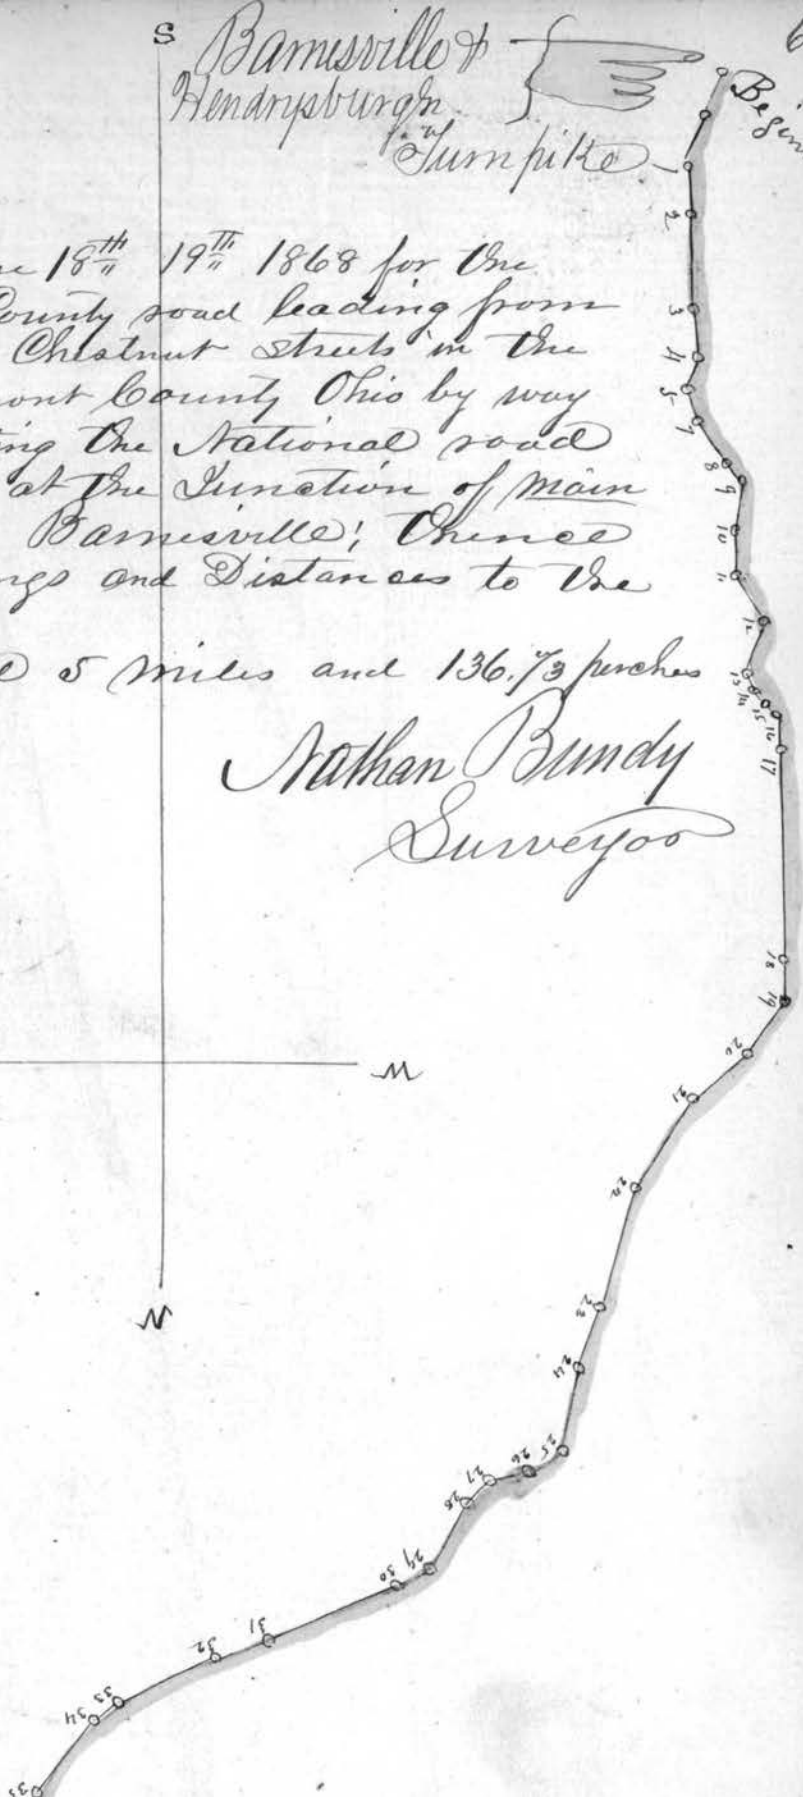 S
Barnesville &
Hendrysburgh
Turnpike
Begin
18th 19th 1868 for the
County road leading from
Chestnut streets in the
mont County Ohio by way
ing the National road
at the Junction of Main
Barnesville; thence
ngs and Distances to the
5 miles and 136.73 perches
Nathan Bundy
Surveyor
W
N
1
2
3
4
5
7
8
9
10
11
12
13
14
15
16
17
18
19
20
21
22
23
24
25
26
27
28
29
30
31
32
33
34
35